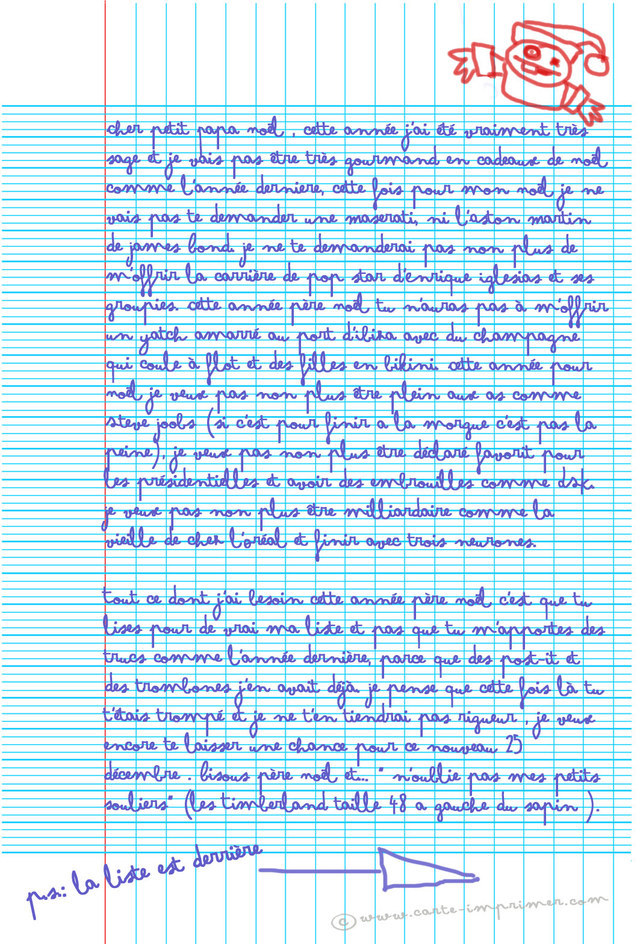 cher petit papa noël, cette année j'ai été vraiment très
sage et je vais pas être très gourmand en cadeaux de noël
comme l'année derniere, cette fois pour mon noël je ne
vais pas te demander une maserati, ni l'aston martin
de james bond. je ne te demanderai pas non plus de
m'offrir la carrière de pop star d'enrique iglesias et ses
groupies. cette année père noël tu n'auras pas à m'offrir
un yatch amarré au port d'ibiza avec du champagne
qui coule à flot et des filles en bikini. cette année pour
noël je veux pas non plus être plein aux as comme
steve joobs (si c'est pour finir a la morgue c'est pas la
peine), je veux pas non plus être déclaré favorit pour
les présidentielles et avoir des embrouilles comme dsk.
je veux pas non plus être milliardaire comme la
vieille de chez l'oréal et finir avec trois neurones.
tout ce dont j'ai besoin cette année père noël c'est que tu
lises pour de vrai ma liste et pas que tu m'apportes des
trucs comme l'année dernière, parce que des post-it et
des trombones j'en avait déjà. je pense que cette fois là tu
t'étais trompé et je ne t'en tiendrai pas rigueur, je veux
encore te laisser une chance pour ce nouveau 25
décembre. bisous père noël et... " n'oublie pas mes petits
souliers" (les timberland taille 48 a gauche du sapin ).
p.s.: la liste est derrière
© www.carte-imprimer.com